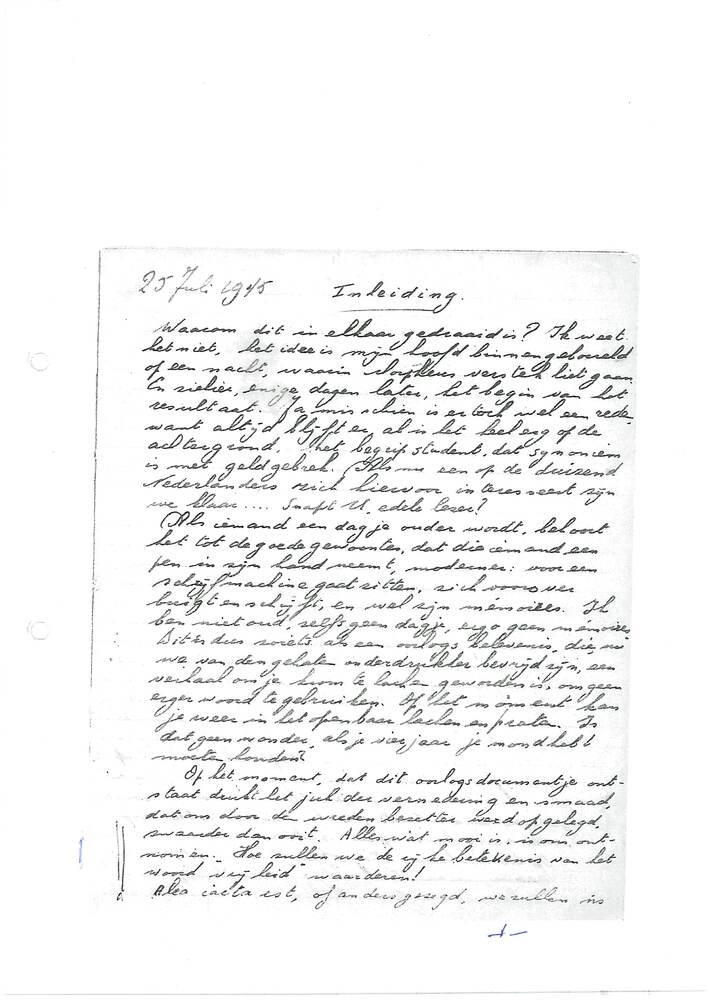 25 Juli 1945
Inleiding.
Waarom dit in elkaar gedraaid is? Ik weet
het niet, het idee is mijn hoofd binnengeborreld
op een nacht, waarin Morpheus verstek liet gaan
En ziehier, enige dagen later, het begin van het
resultaat. Ja misschien is er toch wel een rede,
want altijd blijft er, al is het heel erg op de
achtergrond, het begrip student, dat synoniem
is met geldgebrek. (Als nu een op de duizend
Nederlanders zich hiervoor interesseert zijn
we klaar.... Snapt U, edele lezer?
(Als iemand een dagje ouder wordt, behoort
het tot de goede gewoontes, dat die iemand een
pen in zijn hand neemt, moderner: voor een
schrijfmachine gaat zitten, zich voorover
buigt en schrijft, en wel zijn mémoires. Ik
ben niet oud, zelfs geen dagje, ergo geen mémoires
Dit is dus zoiets als een oorlogs belevenis, die, nu
we van den gehaten onderdrukker bevrijd zijn, een
verhaal om je krom te lachen geworden is, om geen
erger woord te gebruiken. Op het moment kan
je weer in het openbaar lachen en praten. Is
dat geen wonder, als je vier jaar je mond hebt
moeten houden?
Op het moment, dat dit oorlogsdocumentje ont-
staat drukt het juk der vernedering en smaad,
dat ons door de wreden bezetter werd opgelegd,
zwaarder dan ooit. Alles wat mooi is, is ons ont-
nomen. Hoe zullen we de rijke betekenis van het
woord "vrijheid" waarderen!
Alea iacta est, of anders gezegd, we zullen ins